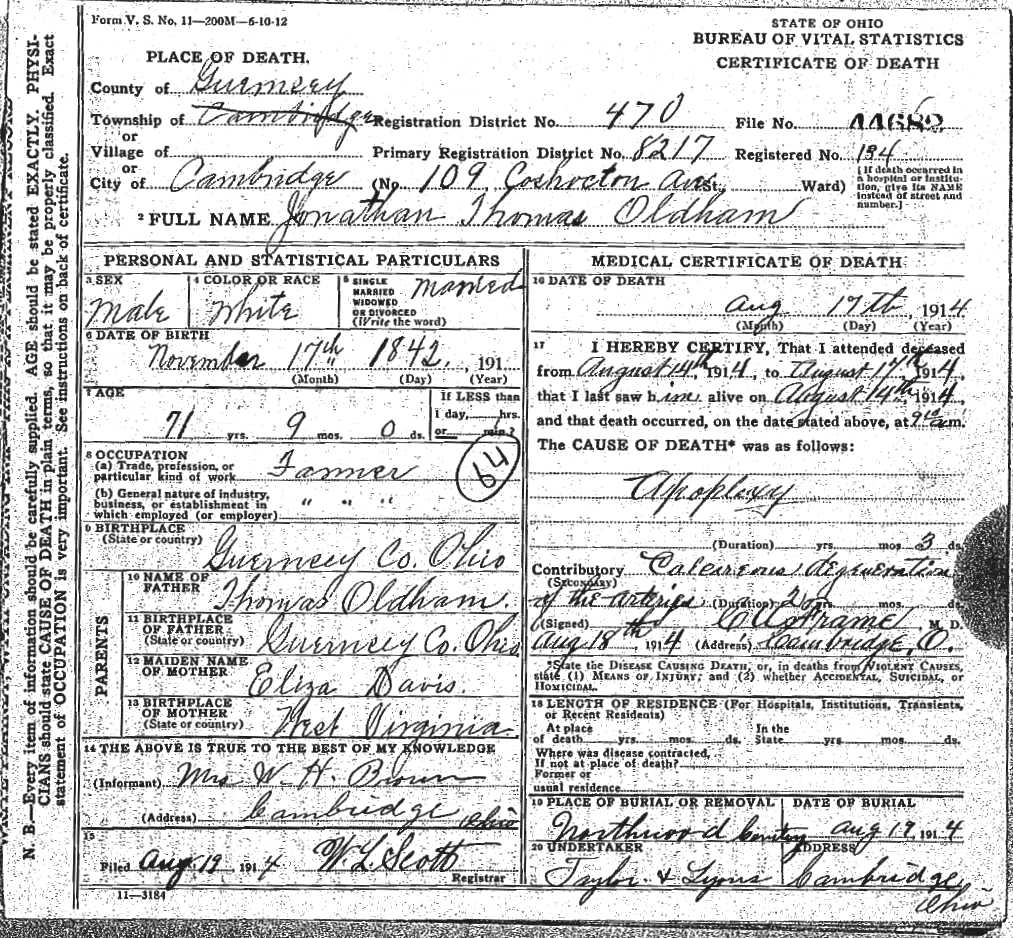 Form V. S. No. 11—200M—6-10-12
STATE OF OHIO
BUREAU OF VITAL STATISTICS
CERTIFICATE OF DEATH
PLACE OF DEATH.
County of Guernsey
Township of Cambridge Registration District No. 470 File No. 44682
or
Village of Primary Registration District No. 8217 Registered No. 134
or
City of Cambridge (No. 109 Coshocton Ave St., Ward)
[If death occurred in a hospital or institution, give its NAME instead of street and number.]
2 FULL NAME Jonathan Thomas Oldham
PERSONAL AND STATISTICAL PARTICULARS
3 SEX Male
4 COLOR OR RACE White
5 SINGLE MARRIED WIDOWED OR DIVORCED (Write the word) Married
6 DATE OF BIRTH
November 17th 1842, 191
(Month) (Day) (Year)
7 AGE
71 yrs. 9 mos. 0 ds.
If LESS than
1 day, hrs.
or min.?
8 OCCUPATION
(a) Trade, profession, or
particular kind of work Farmer
64
(b) General nature of industry,
business, or establishment in
which employed (or employer) " " "
9 BIRTHPLACE
(State or country) Guernsey Co. Ohio
PARENTS
10 NAME OF
FATHER Thomas Oldham.
11 BIRTHPLACE
OF FATHER
(State or country) Guernsey Co. Ohio
12 MAIDEN NAME
OF MOTHER Eliza Davis.
13 BIRTHPLACE
OF MOTHER
(State or country) West Virginia.
14 THE ABOVE IS TRUE TO THE BEST OF MY KNOWLEDGE
(Informant) Mrs W. H. Brown
(Address) Cambridge Ohio
15
Filed Aug 19 1914 W. L. Scott
Registrar
11—3184
MEDICAL CERTIFICATE OF DEATH
16 DATE OF DEATH
Aug 17th, 1914
(Month) (Day) (Year)
17 I HEREBY CERTIFY, That I attended deceased
from August 14th, 1914, to August 17th, 1914,
that I last saw him alive on August 14th, 1914,
and that death occurred, on the date stated above, at a.m.
The CAUSE OF DEATH* was as follows:
Apoplexy
(Duration) yrs. mos 3 ds.
Contributory Calcareous degeneration
(SECONDARY)
of the arteries (Duration) 2 yrs. mos. ds.
(Signed) Frame, M. D.
Aug 18th, 1914 (Address) Cambridge, O.
*State the DISEASE CAUSING DEATH, or, in deaths from VIOLENT CAUSES,
state (1) MEANS OF INJURY; and (2) whether ACCIDENTAL, SUICIDAL, or
HOMICIDAL.
18 LENGTH OF RESIDENCE (For Hospitals, Institutions, Transients,
or Recent Residents)
At place In the
of death yrs. mos. ds. State yrs. mos. ds.
Where was disease contracted,
If not at place of death?
Former or
usual residence
19 PLACE OF BURIAL OR REMOVAL DATE OF BURIAL
Northwood Aug 19, 1914
20 UNDERTAKER ADDRESS
Taylor & Lyons Cambridge,
Ohio
N. B.—Every item of information should be carefully supplied. AGE should be stated EXACTLY. PHYSI-
CIANS should state CAUSE OF DEATH in plain terms, so that it may be properly classified. Exact
statement of OCCUPATION is very important. See instructions on back of certificate.